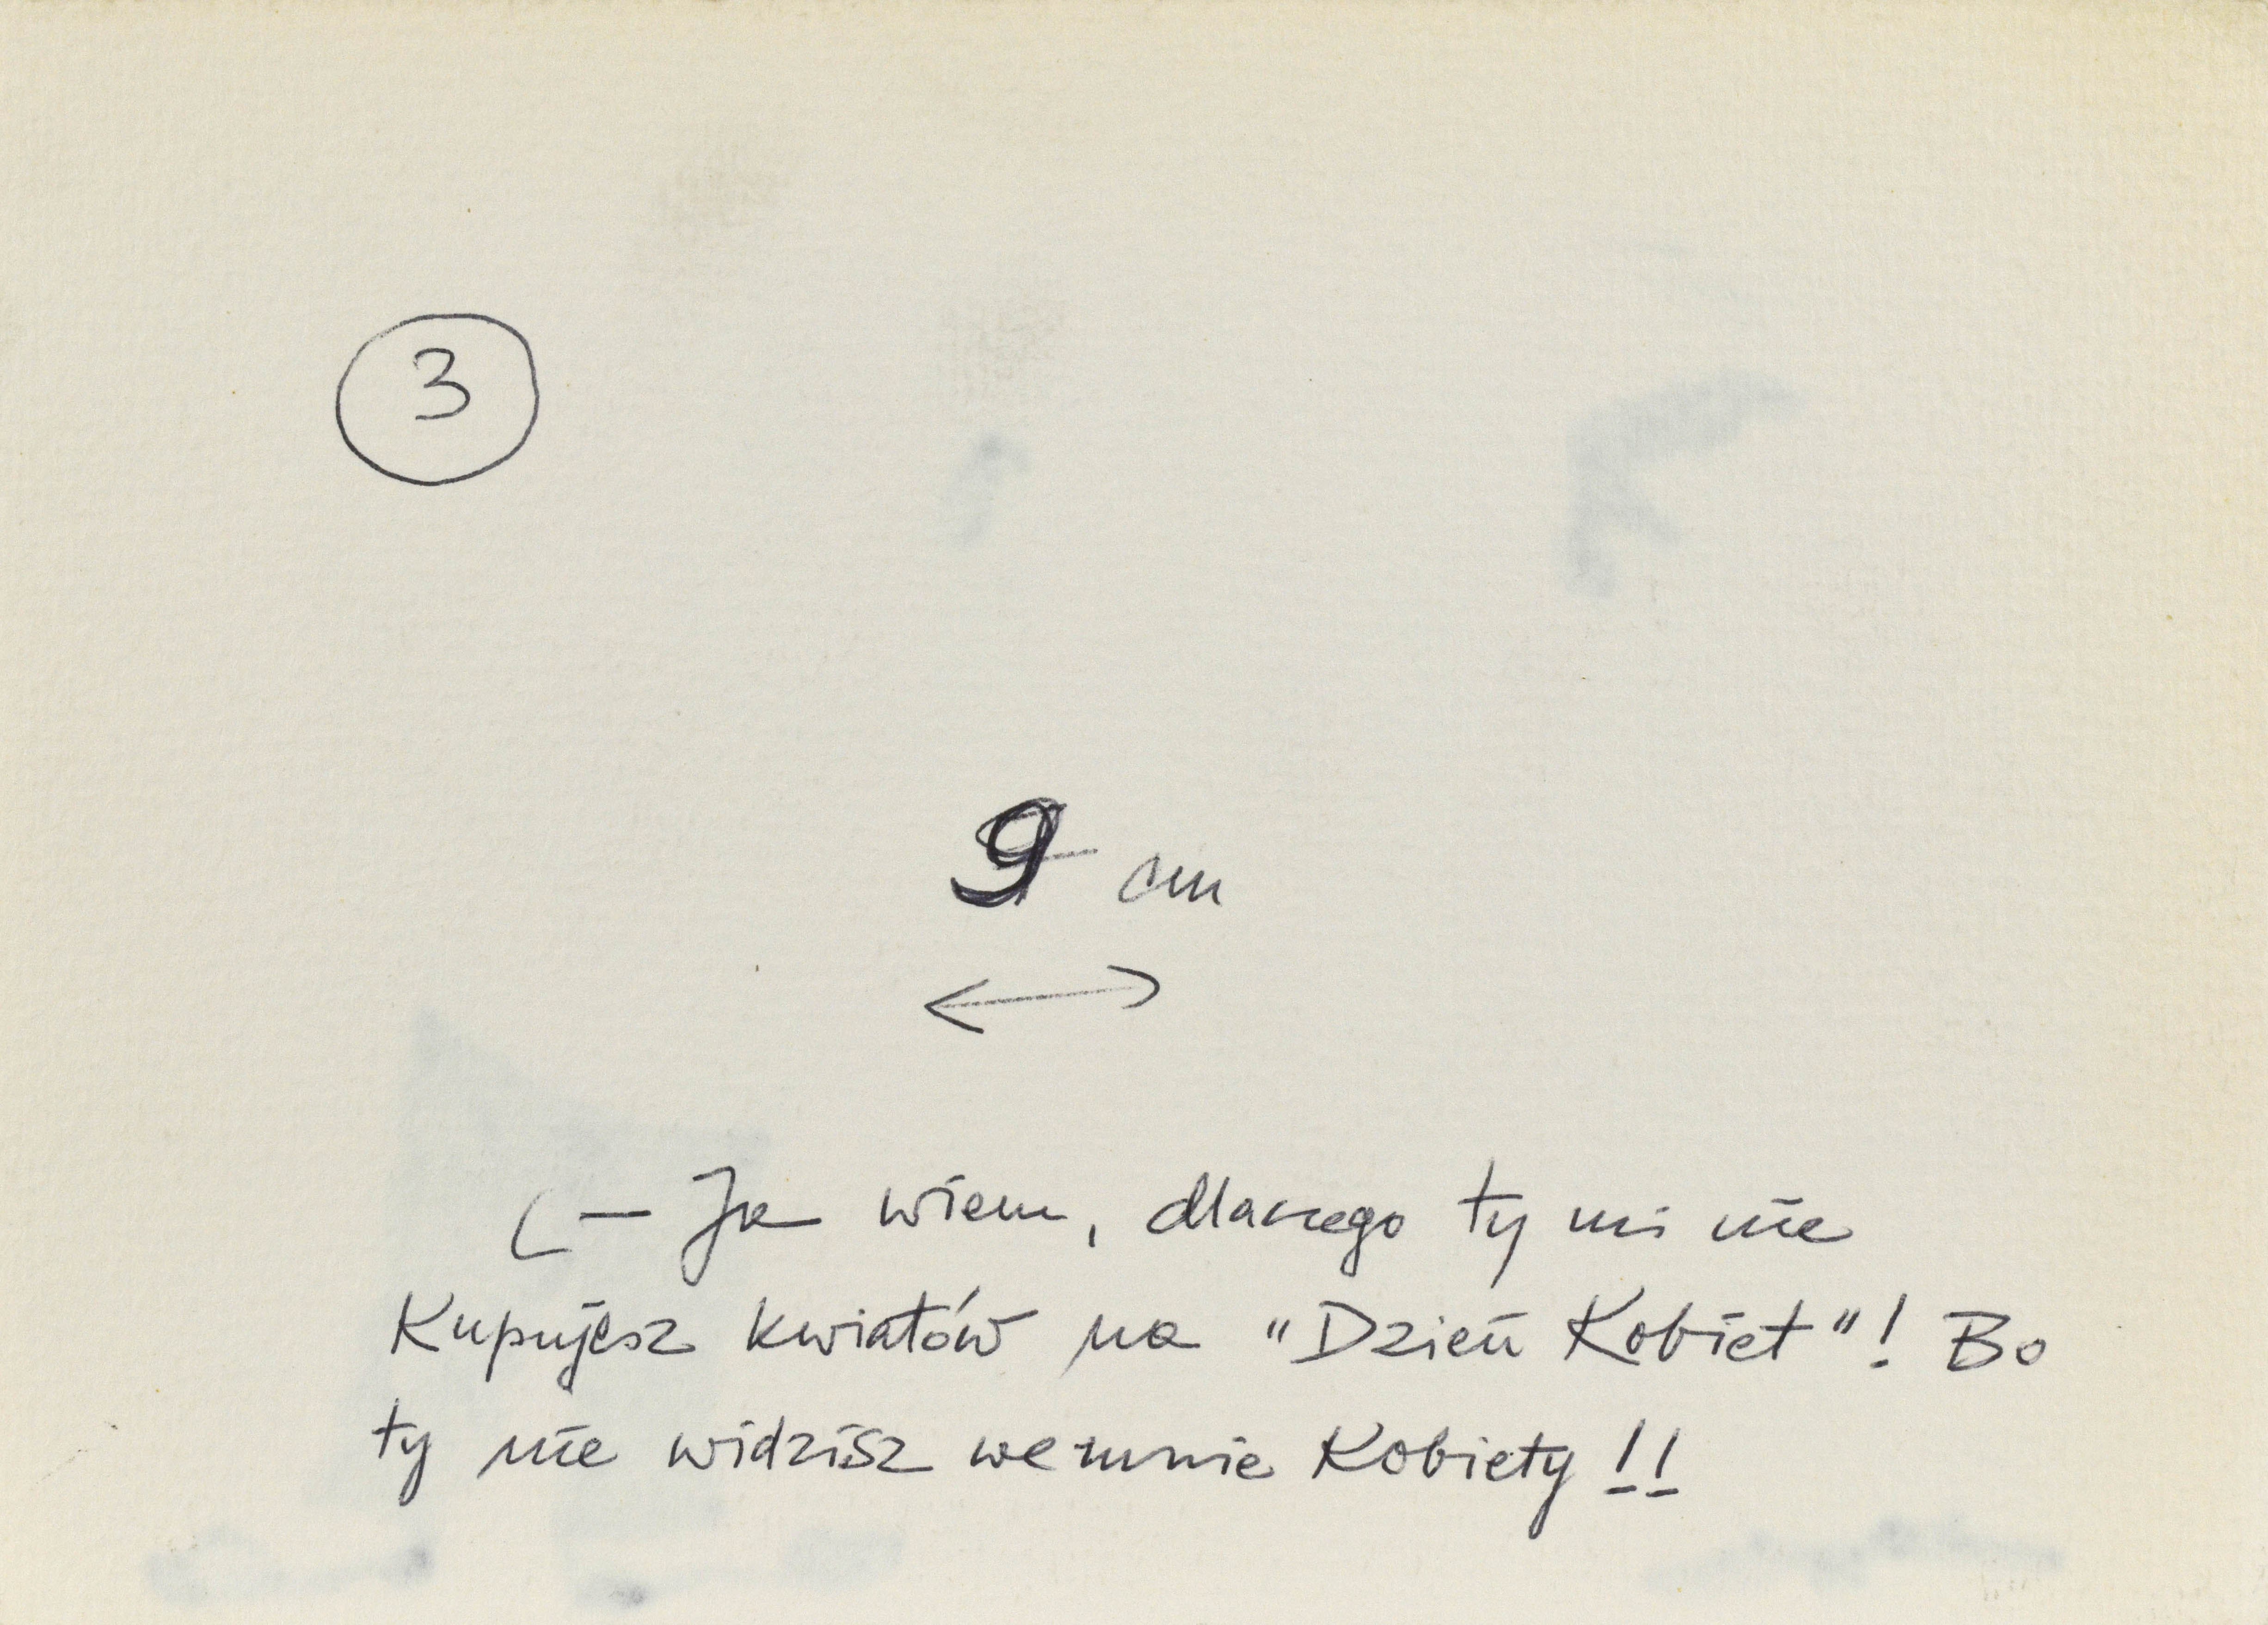 3
9 cm
(— Ja wiem, dlaczego ty mi nie
Kupujesz kwiatów na "Dzień Kobiet"! Bo
ty nie widzisz we mnie Kobiety!!